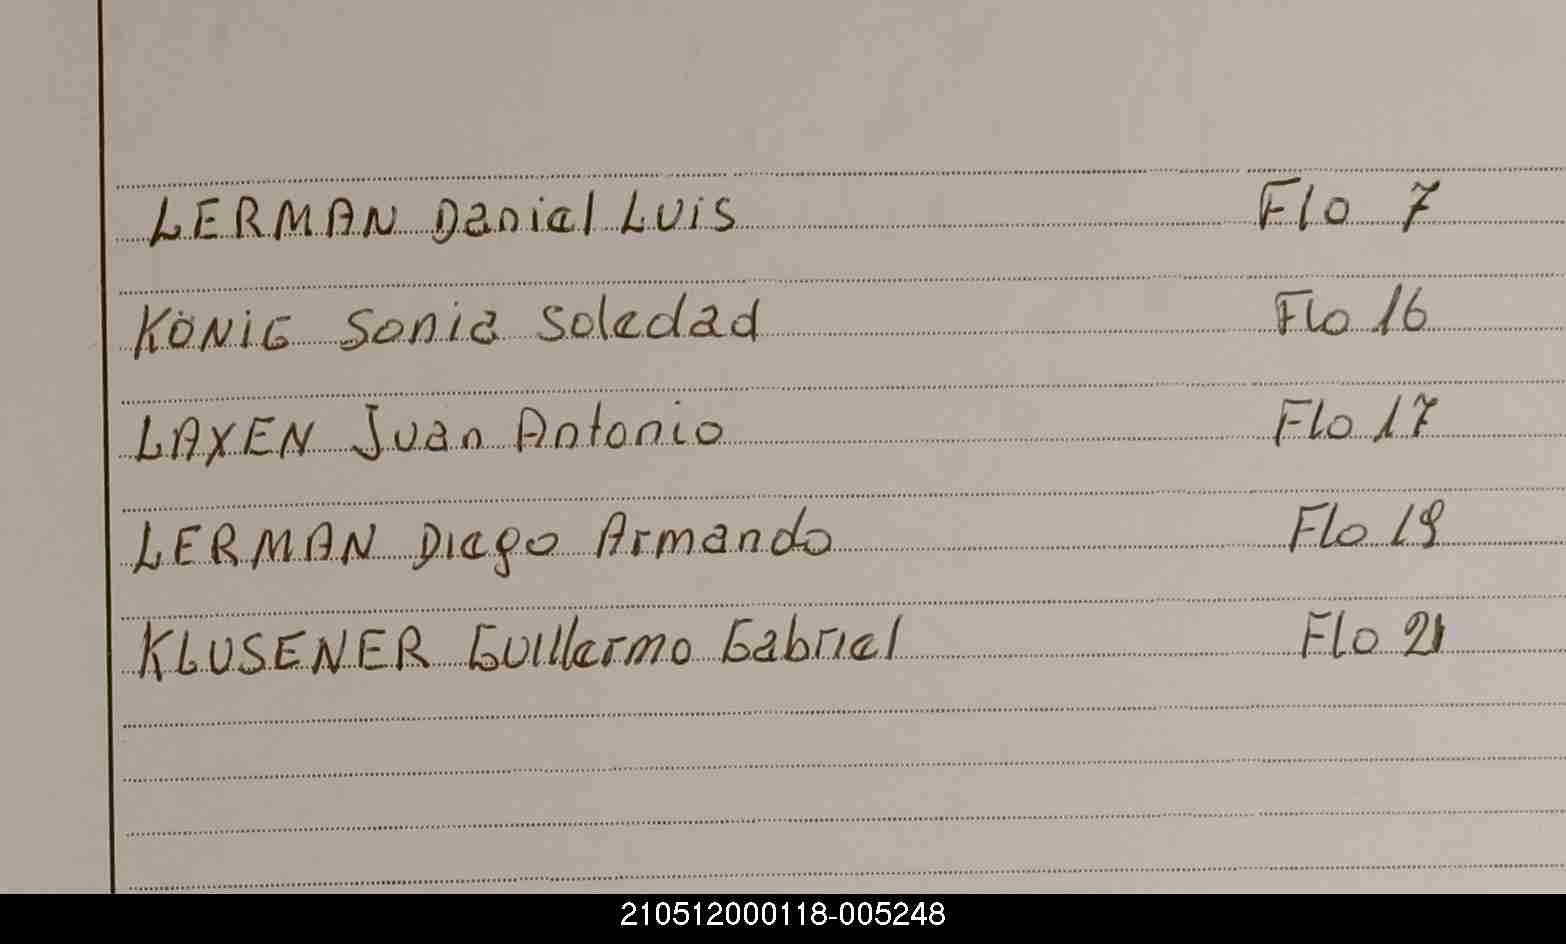 LERMAN Daniel Luis Flo 7
KÖNIG Sonia Soledad Flo 16
LAXEN Juan Antonio Flo 17
LERMAN Diego Armando Flo 19
KLUSENER Guillermo Gabriel Flo 21
210512000118-005248